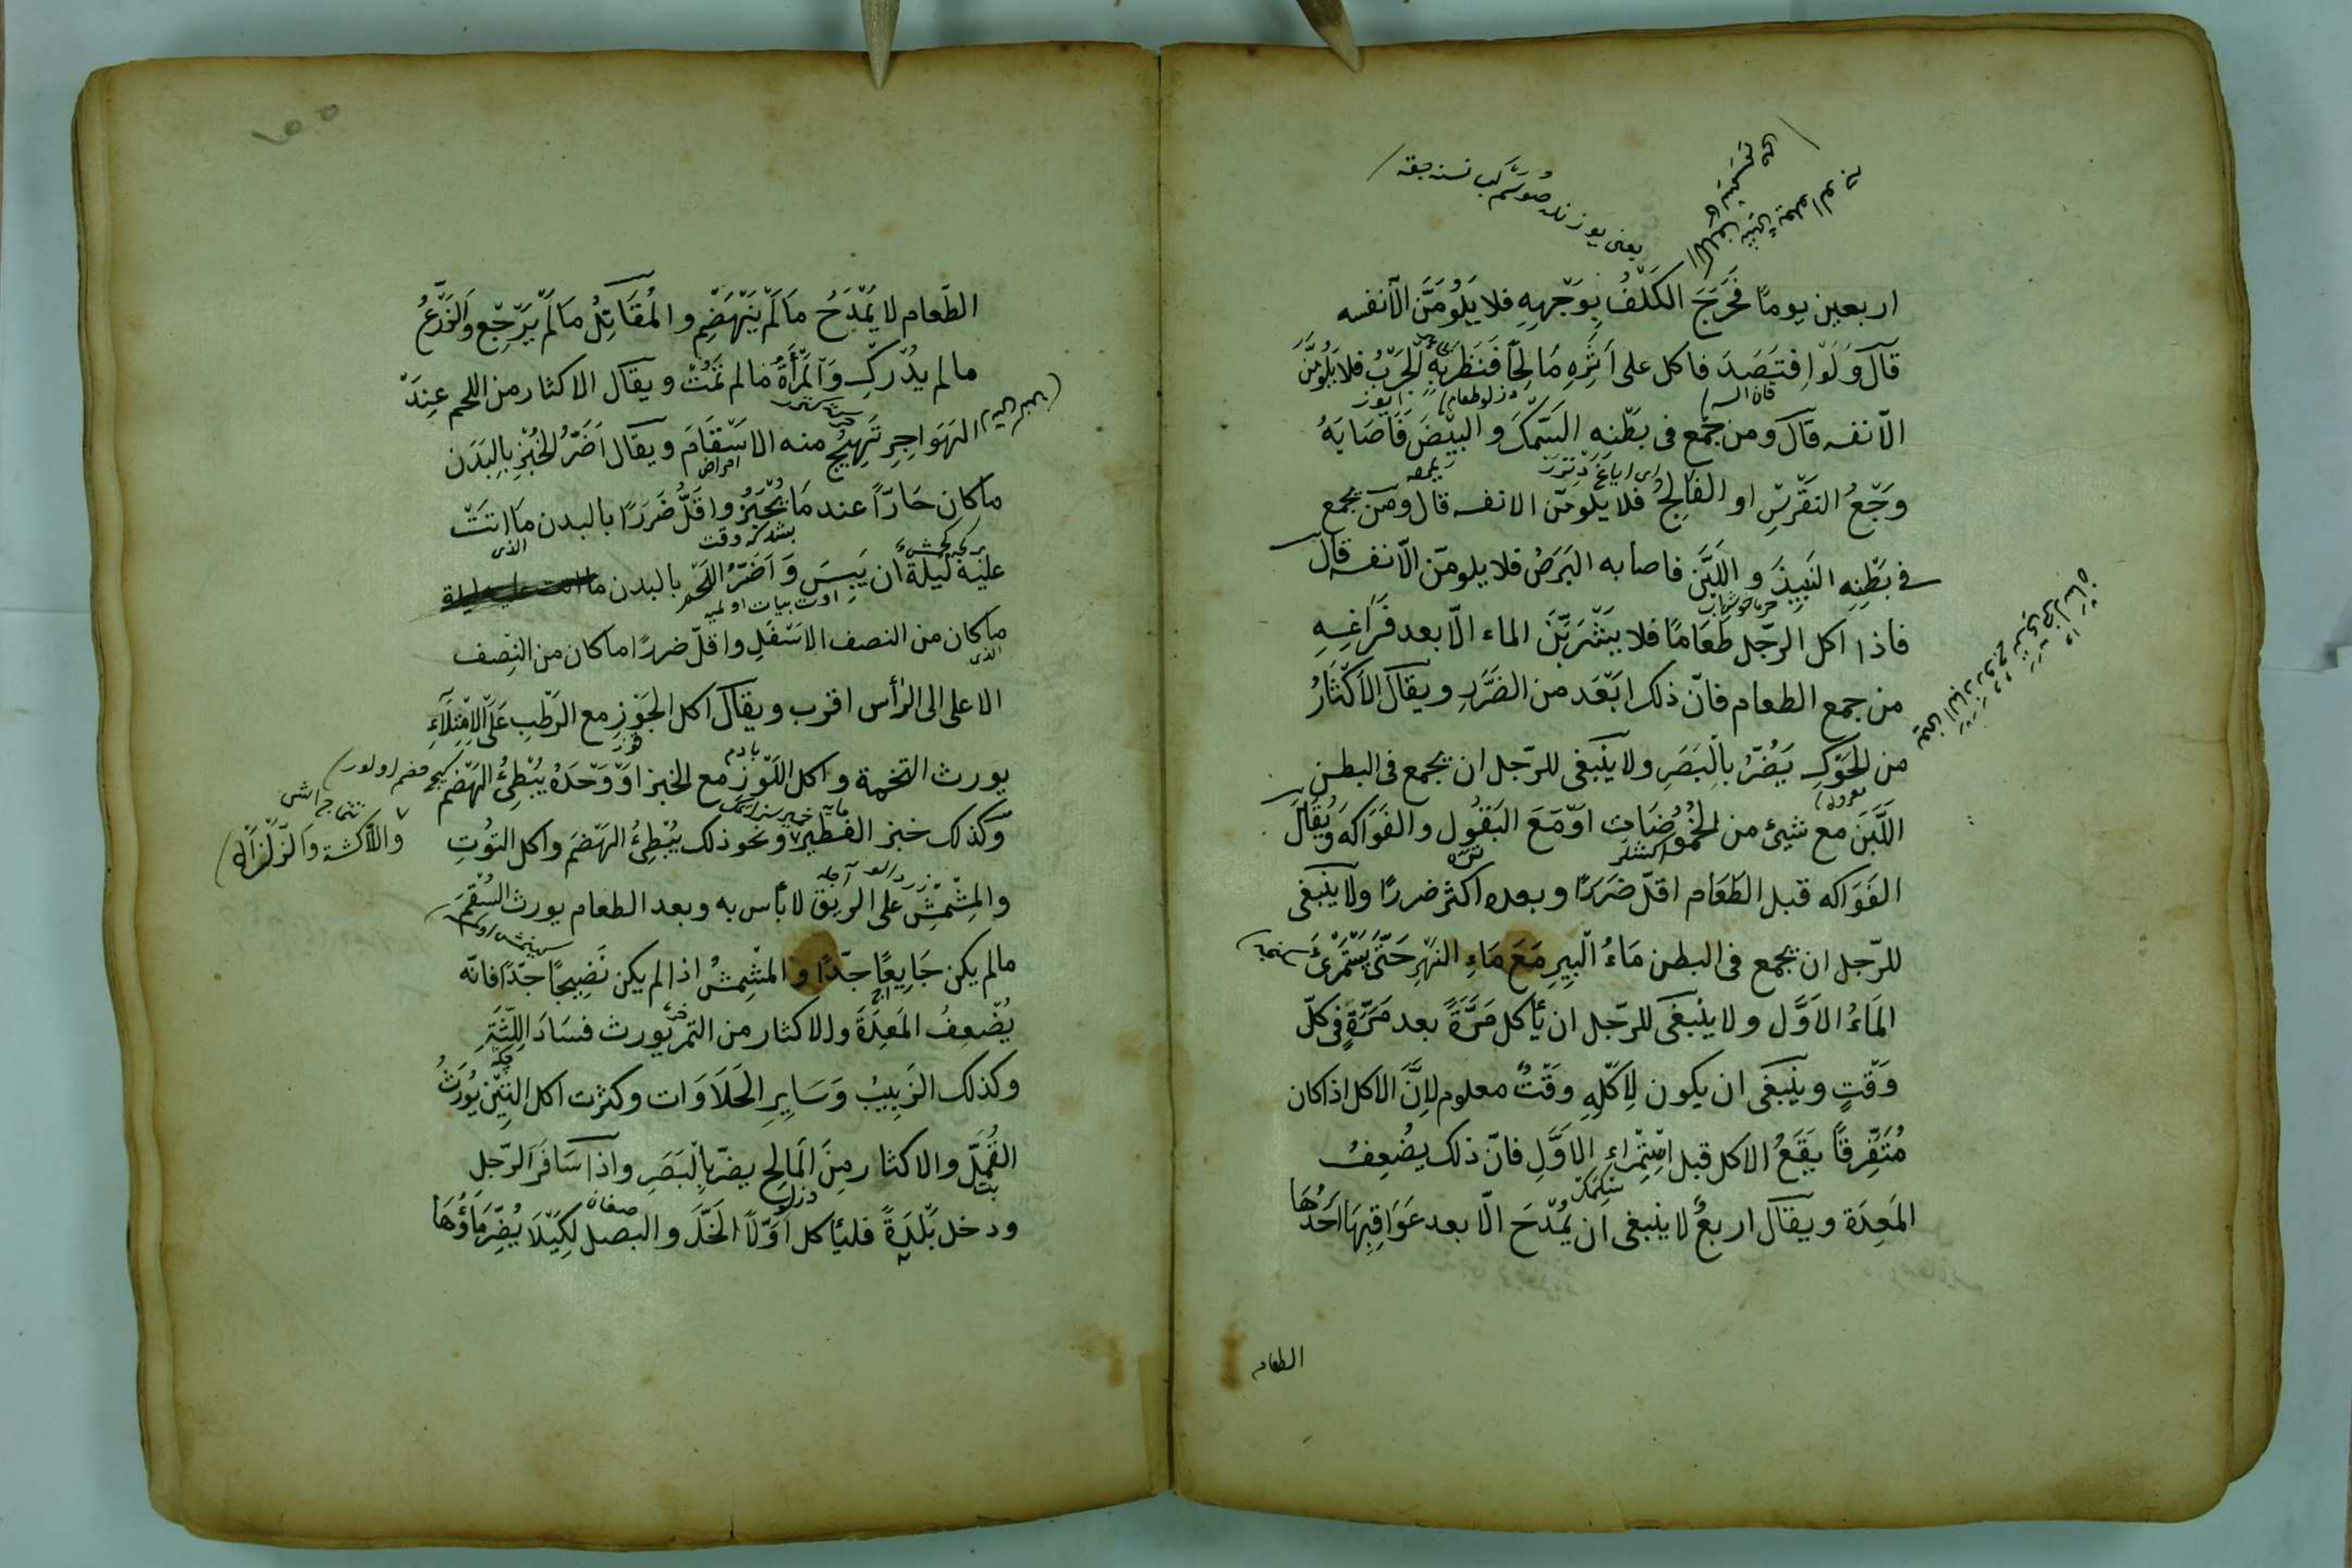 اربعين يومًا فَخَرَجَ الكَلَفُ بِوَجْهِهِ فلا يَلُومَنَّ الّا نفسه
قَالَ وَلَوْ اِفْتَصَدَ فاكل على اَثَرِهِ مَالِحًا فَنَظَرَ بِهِ الْجَرَبُ فلا يَلُومَنَّ
الّا نفسه قال ومن جَمَعَ فى بَطْنِهِ السَّمَكَ والبَيْضَ فَاَصَابَهُ
وَجَعُ النَقْرِسِ او الفَالِجُ فلا يلومنّ الا نفسه قال ومن يجمع
فى بَطْنِهِ النَبِيذَ واللَبَنَ فاصابه البَرَصُ فلا يلومنّ الّا نفسه قال
فاذا اكل الرّجل طَعَامًا فلا يَشْرَبَنَّ الماء الّا بعد فَرَاغِهِ
من جمع الطعام فانّ ذلك ابْعَد من الضَرَرِ ويقال الاَكْثَارُ
من الحَوْكِ يَضُرُّ بِالْبَصَرِ ولا يَنْبَغى للرّجل ان يجمع فى البطن
اللَّبَنَ مع شيئ من الحُمُوضَاتِ اوْ مَعَ البَقُول والفَوَاكه ويُقَال
الفَوَاكه قبل الطَعَام اقلّ ضَرَرًا وبعده اكثر ضررًا ولا ينبغى
للرّجل ان يجمع فى البطن مَاءُ الْبِيرِ مَعَ مَاءِ النَهْرِ حَتَّى يَسْتَمْرِئَ
المَاءُ الاَوَّل ولا ينْبَغى للرّجل ان يأكل مَرَّةً بعد مَرَّةٍ فى كلّ
وَقْتٍ وينْبَغى ان يكون لِاَكْلِهِ وَقْتٌ معلوم لِاَنَّ الاكل اذا كان
مُتَفَرِّقًا يَقَعُ الاكل قبل اسْتِمْرَاءِ الاَوَّلِ فانّ ذلك يضْعِفُ
المَعِدَة ويقال اربعٌ لا ينبغى ان يُمْدَحَ الّا بعد عَوَاقِبِهَا اَحَدُهَا
الطعام
الطّعام لا يُمْدَحُ مَا لَمْ يَنْهَضِم والمُقَاتِلُ مَا لَمْ يَرْجِع والزَّرْعُ
مالم يُدْرَك والْمَرْأَةُ مالم تَمُتْ ويقال الاكثار من اللحم عِنْدَ
الهَوَاجِرِ تَهِيْجُ منه الاسْقَامَ ويقال اَضَرُّ الخُبْزِ بِالبَدَن
امراض
ماكان حَارًّا عند مَا يُخْبَزُ واقَلُّ ضَرَرًا بالبدن مَا اتَتْ
الذى
عليه لَيْلَةٌ ان يَبِسَ وَاَضَرُّ اللَحْمِ بالبدن
ماكان من النصف الاَسْفَلِ واقلّ ضررًا ماكان من النِصف
الذى
الاعلى الى الرأس اقرب ويقال اكل الجَوْزِ مع الرَطْبِ عَلَى الاِمْتِلَاءِ
يورث التخمة واكل اللَوْز مع الخبز اوْ وَحْدَهُ يُبْطِئُ الهَضْم
وكذلك خبز الفطير ونحو ذلك يُبْطِئُ الهَضْمَ واكل التُوْتِ
والمِشْمِش على الرِيق لا بأس به وبعد الطعام يورث السُقْمَ
مالم يكن جَايِعًا جدّا والمشْمِشُ اذا لم يكن نَضِيجًا جدّا فانّه
يُضْعِفُ المَعِدَة والاكثار من التمر يورث فسَادَ اللِثَةِ
وكذلك الزَبِيبُ وَسَايِرِ الحَلَاوَات وكثرت اكل التِيْن يُورثُ
القُمَّل والاكثار مِنَ المَالِحِ يضرّ بِالْبَصَرِ واذا سَافَرَ الرّجل
ودخل بَلْدَةً فليأكل اَوَّلًا الخَلّ والبصل لِكَيْلَا يُضِرَّ مَاؤُهَا